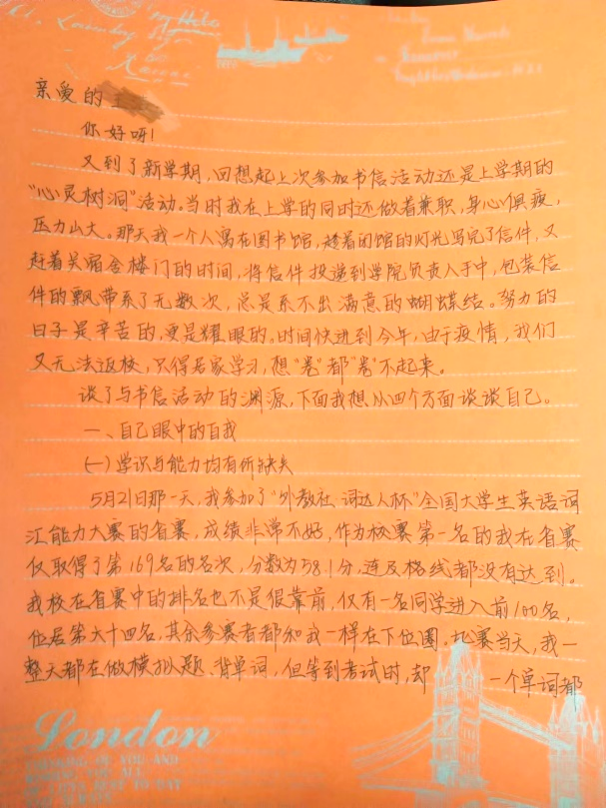 亲爱的
你好呀！
又到了新学期，回想起上次参加书信活动还是上学期的
“心灵树洞”活动。当时我在上学的同时还做着兼职，身心俱疲，
压力山大。那天我一个人窝在图书馆，趁着闭馆的灯光写完了信件，又
赶着关宿舍楼门的时间，将信件投递到学院负责人手中，包装信
件的飘带系了无数次，总是系不出满意的蝴蝶结。努力的
日子是辛苦的，更是耀眼的。时间快进到今年，由于疫情，我们
又无法返校，只得居家学习，想“卷”都“卷”不起来。
谈了与书信活动的渊源，下面我想从四个方面谈谈自己。
一、自己眼中的自我
(一)学识与能力均有所缺失
5月21日那一天，我参加了“外教社·词达人杯”全国大学生英语词
汇能力大赛的省赛，成绩非常不好，作为校赛第一名的我在省赛
仅取得了第169名的名次，分数为58.1分，连及格线都没有达到。
我校在省赛中的排名也不是很靠前，仅有一名同学进入前100名，
位居第六十四名，其余参赛者都和我一样在下位圈。比赛当天，我一
整天都在做模拟题、背单词，但等到考试时，却 一个单词都
London